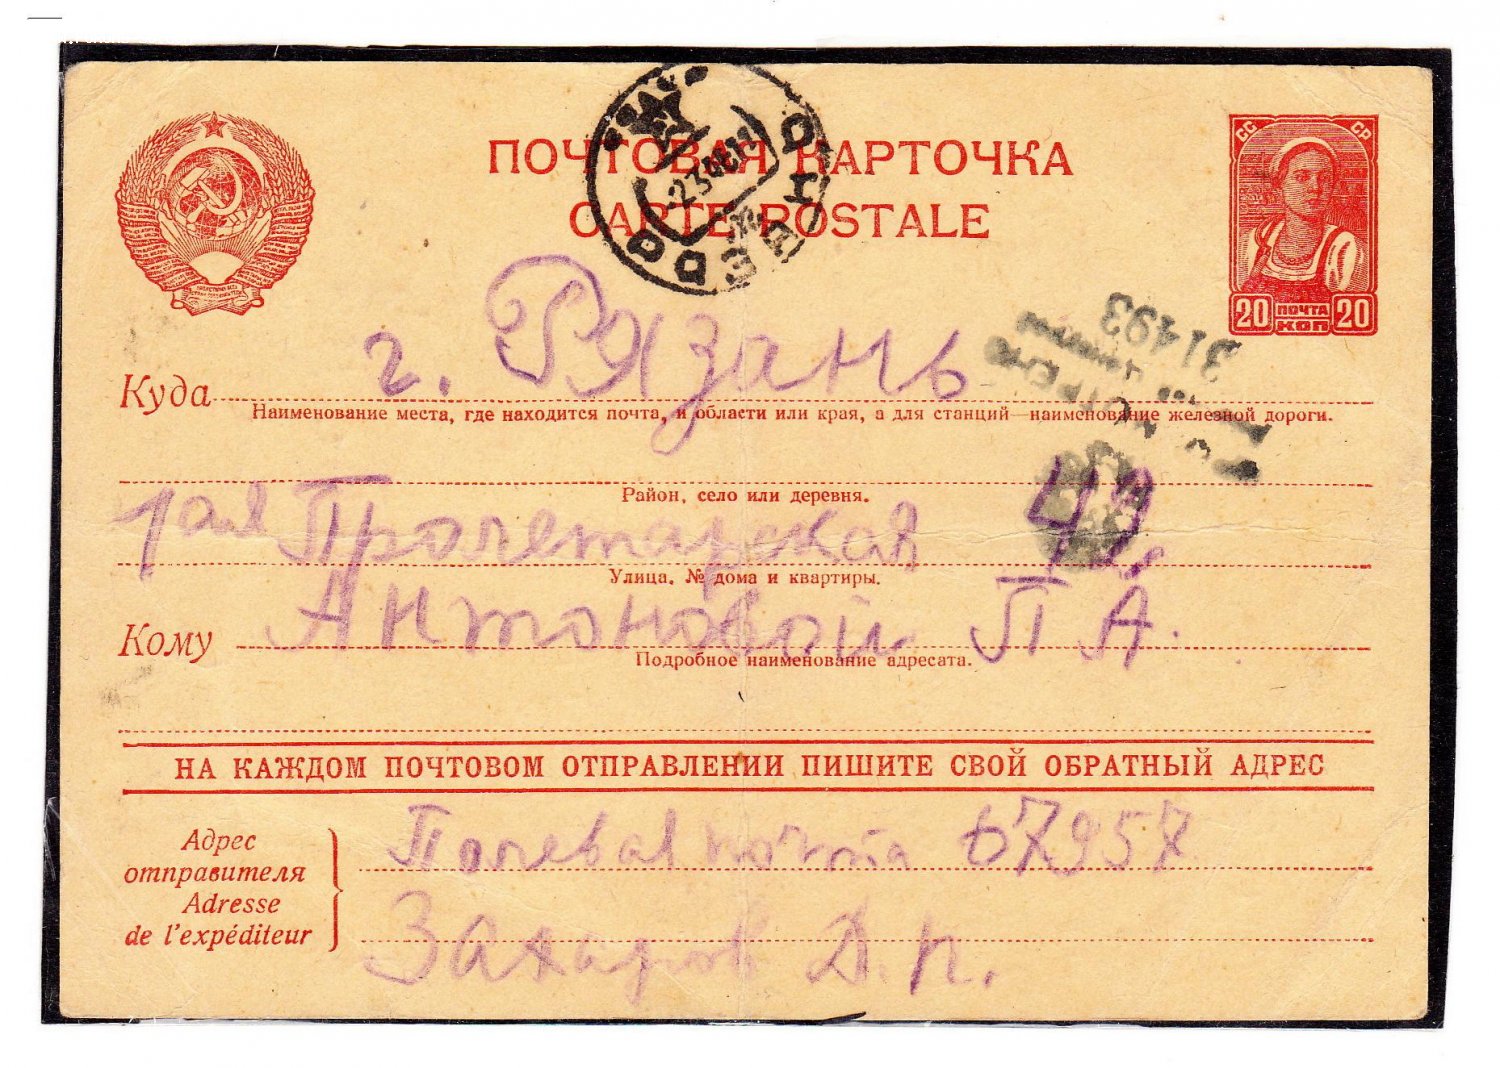 ПОЧТОВАЯ КАРТОЧКА
CARTE POSTALE
СС СР
20 ПОЧТА КОП 20
23 4
31493
Куда г. Рязань
Наименование места, где находится почта, и области или края, а для станций—наименование железной дороги.
Район, село или деревня.
1ая Пролетарская 49
Улица, № дома и квартиры.
Кому Антоновой П А.
Подробное наименование адресата.
НА КАЖДОМ ПОЧТОВОМ ОТПРАВЛЕНИИ ПИШИТЕ СВОЙ ОБРАТНЫЙ АДРЕС
Адрес отправителя
Adresse de l'expéditeur
Полевая почта 67957
Захаров Д. п.